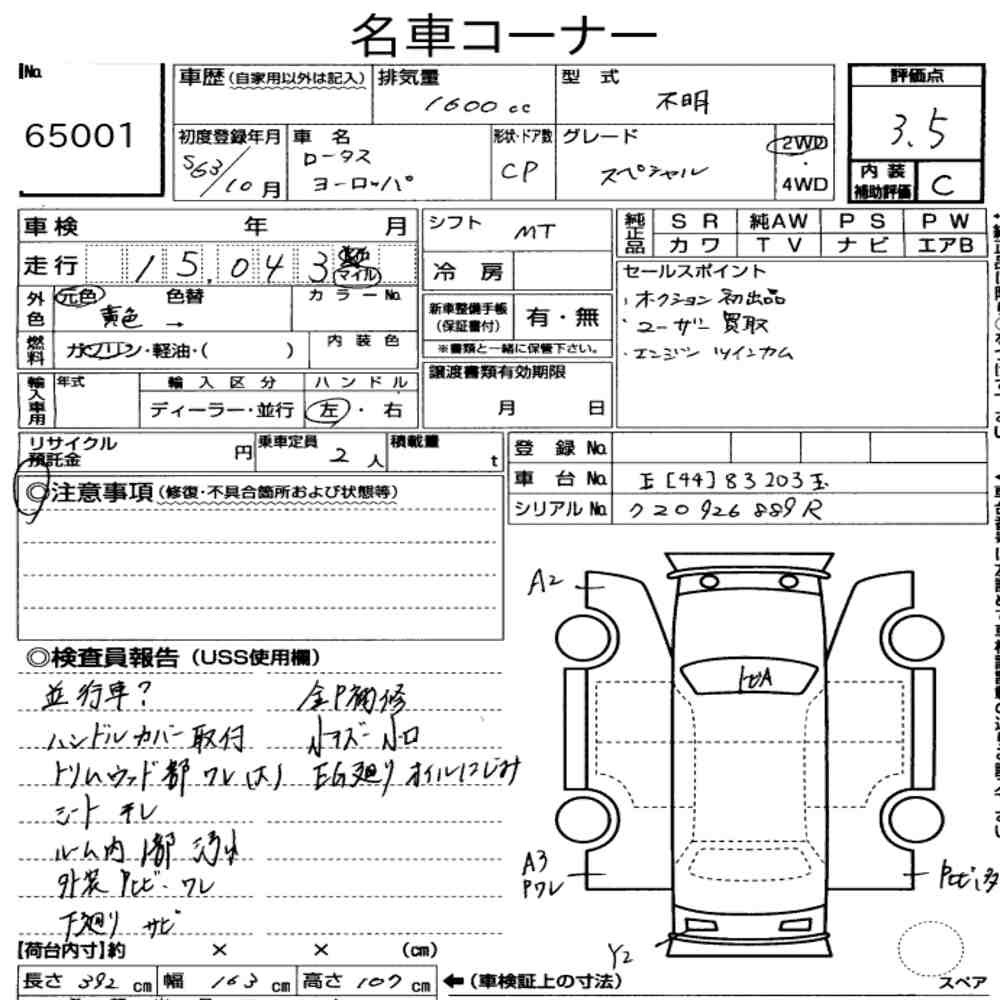 名車コーナー
No.
65001
車歴(自家用以外は記入)
排気量
1600cc
型 式
不明
評価点
3.5
初度登録年月
S63/10月
車 名
ロータス
ヨーロッパ
形状・ドア数
CP
グレード
スペシャル
2WD
・
4WD
内 装
補助評価
C
車検 年 月
走行 15,043 マイル
外色
元色 色替
黄色 →
カラーNo.
燃料
ガソリン・軽油・( )
内装色
輸入車用
年式
輸入区分
ディーラー・並行
ハンドル
左・右
シフト
MT
冷 房
新車整備手帳
(保証書付)
有・無
※書類と一緒に保管下さい。
譲渡書類有効期限
月 日
純正品
SR 純AW PS PW
カワ TV ナビ エアB
セールスポイント
・オクション初出品
・ユーザー買取
・エンジン ツインカム
リサイクル
預託金
円
乗車定員
2人
積載量
t
登 録 No.
車 台 No.
王[44]83203玉
シリアル No.
ク20926889R
◎注意事項(修復・不具合箇所および状態等)
◎検査員報告(USS使用欄)
並行車?
ハンドルカバー取付
トリムウッド部ワレ(大)
シート チレ
ルーム内 1部 汚れ
外装 Pヒビ・ワレ
下廻り サビ
全P補修
小キズ・小凹
EG廻りオイルにじみ
A2
トビA
A3
Pワレ
Pヒビ多
Y2
スペア
【荷台内寸】約 × × (cm)
長さ 392 cm 幅 163 cm 高さ 107 cm
←(車検証上の寸法)